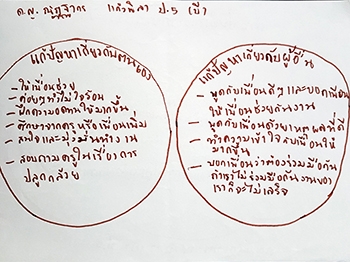 ด.ญ. ณัฏฐากร แก้วพิลา ป.5 (ปี)
แก้ปัญหาเกี่ยวกับตนเอง
- ให้เพื่อนช่วย
- ค่อยๆทำไม่ใจร้อน
- ฝึกความอดทนให้มากขึ้น
- ศึกษาจากครูหรือเพื่อนเพิ่ม
- สนใจและมุ่งมั่นทำงาน
- สอบถามครูในเรื่องการ
ปลูกกล้วย
แก้ปัญหาเกี่ยวกับผู้อื่น
- พูดกับเพื่อนดีๆและบอกเพื่อน
ให้เพื่อนช่วยกันงาน
- พูดกับเพื่อนด้วยเหตุผลที่ดี
- ทำความเข้าใจกับเพื่อนให้
มากขึ้น
- บอกเพื่อนว่าต้องร่วมมือกัน
ถ้าเราไม่ร่วมมือกันงานของ
เราก็จะไม่เสร็จ